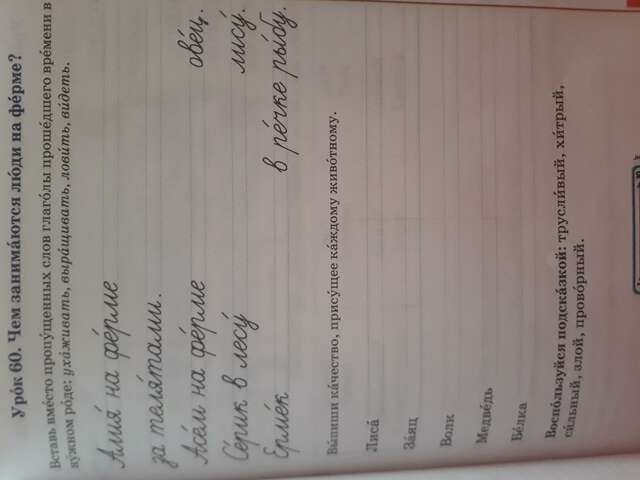 Уро́к 60. Чем занима́ются лю́ди на фе́рме?
Вставь вме́сто пропу́щенных слов глаго́лы проше́дшего вре́мени в
ну́жном ро́де: уха́живать, выра́щивать, лови́ть, ви́деть.
Алия́ на фе́рме
за теля́тами.
Асе́м на фе́рме ове́ц.
Се́рик в лесу́ лису́.
Ерме́к в ре́чке ры́бу.
Вы́пиши ка́чество, прису́щее ка́ждому живо́тному.
Лиса́
За́яц
Волк
Медве́дь
Бе́лка
Воспо́льзуйся подска́зкой: трусли́вый, хи́трый,
си́льный, злой, прово́рный.